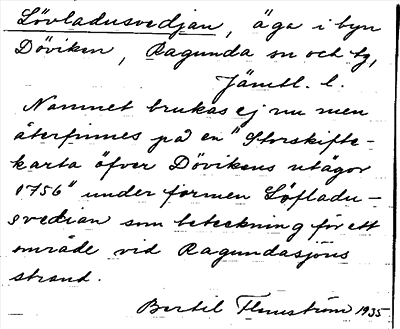 Lövladusvedjan, äga i byn
Döviken, Ragunda sn och tg,
Jämtl. l.
Namnet brukas ej nu men
återfinnes på en "Storskifte-
karta öfver Dövikens utägor
1756" under formen Löfladu-
svedian som beteckning för ett
område vid Ragundasjöns
strand.
Bertil Flemström 1935